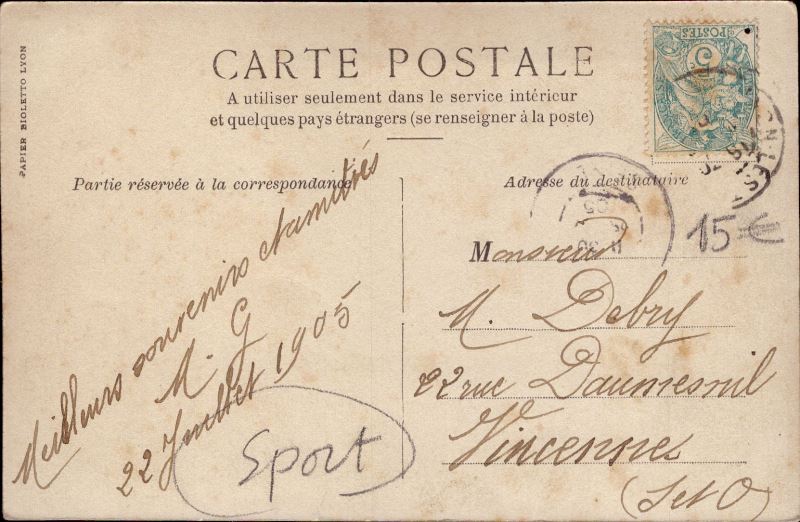 PAPIER BIOLETTO LYON
CARTE POSTALE
A utiliser seulement dans le service intérieur
et quelques pays étrangers (se renseigner à la poste)
Partie réservée à la correspondance
Meilleurs souvenirs et amitiés
M. G
22 Juillet 1905
Sport
POSTES
5
Adresse du destinataire
15 €
Monsieur
M. Debry
22 rue Daumesnil
Vincennes
(S et O)